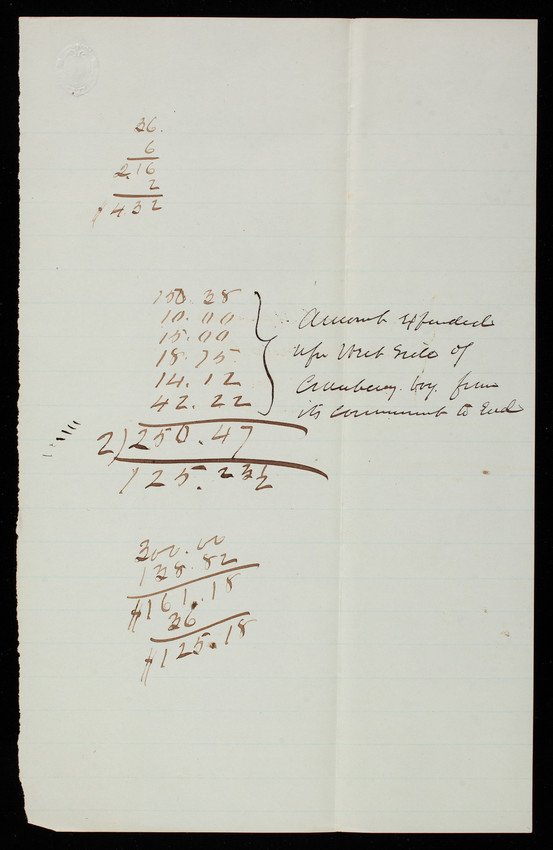 36.
6
2.16
2
$4.32
150.38
10.00
15.00
18.75
14.12
42.22
2)250.47
125.23½
Amount Expended
upon West Side of
Cranberry bog from
its commencement to End
300.00
138.82
$161.18
36.
$125.18